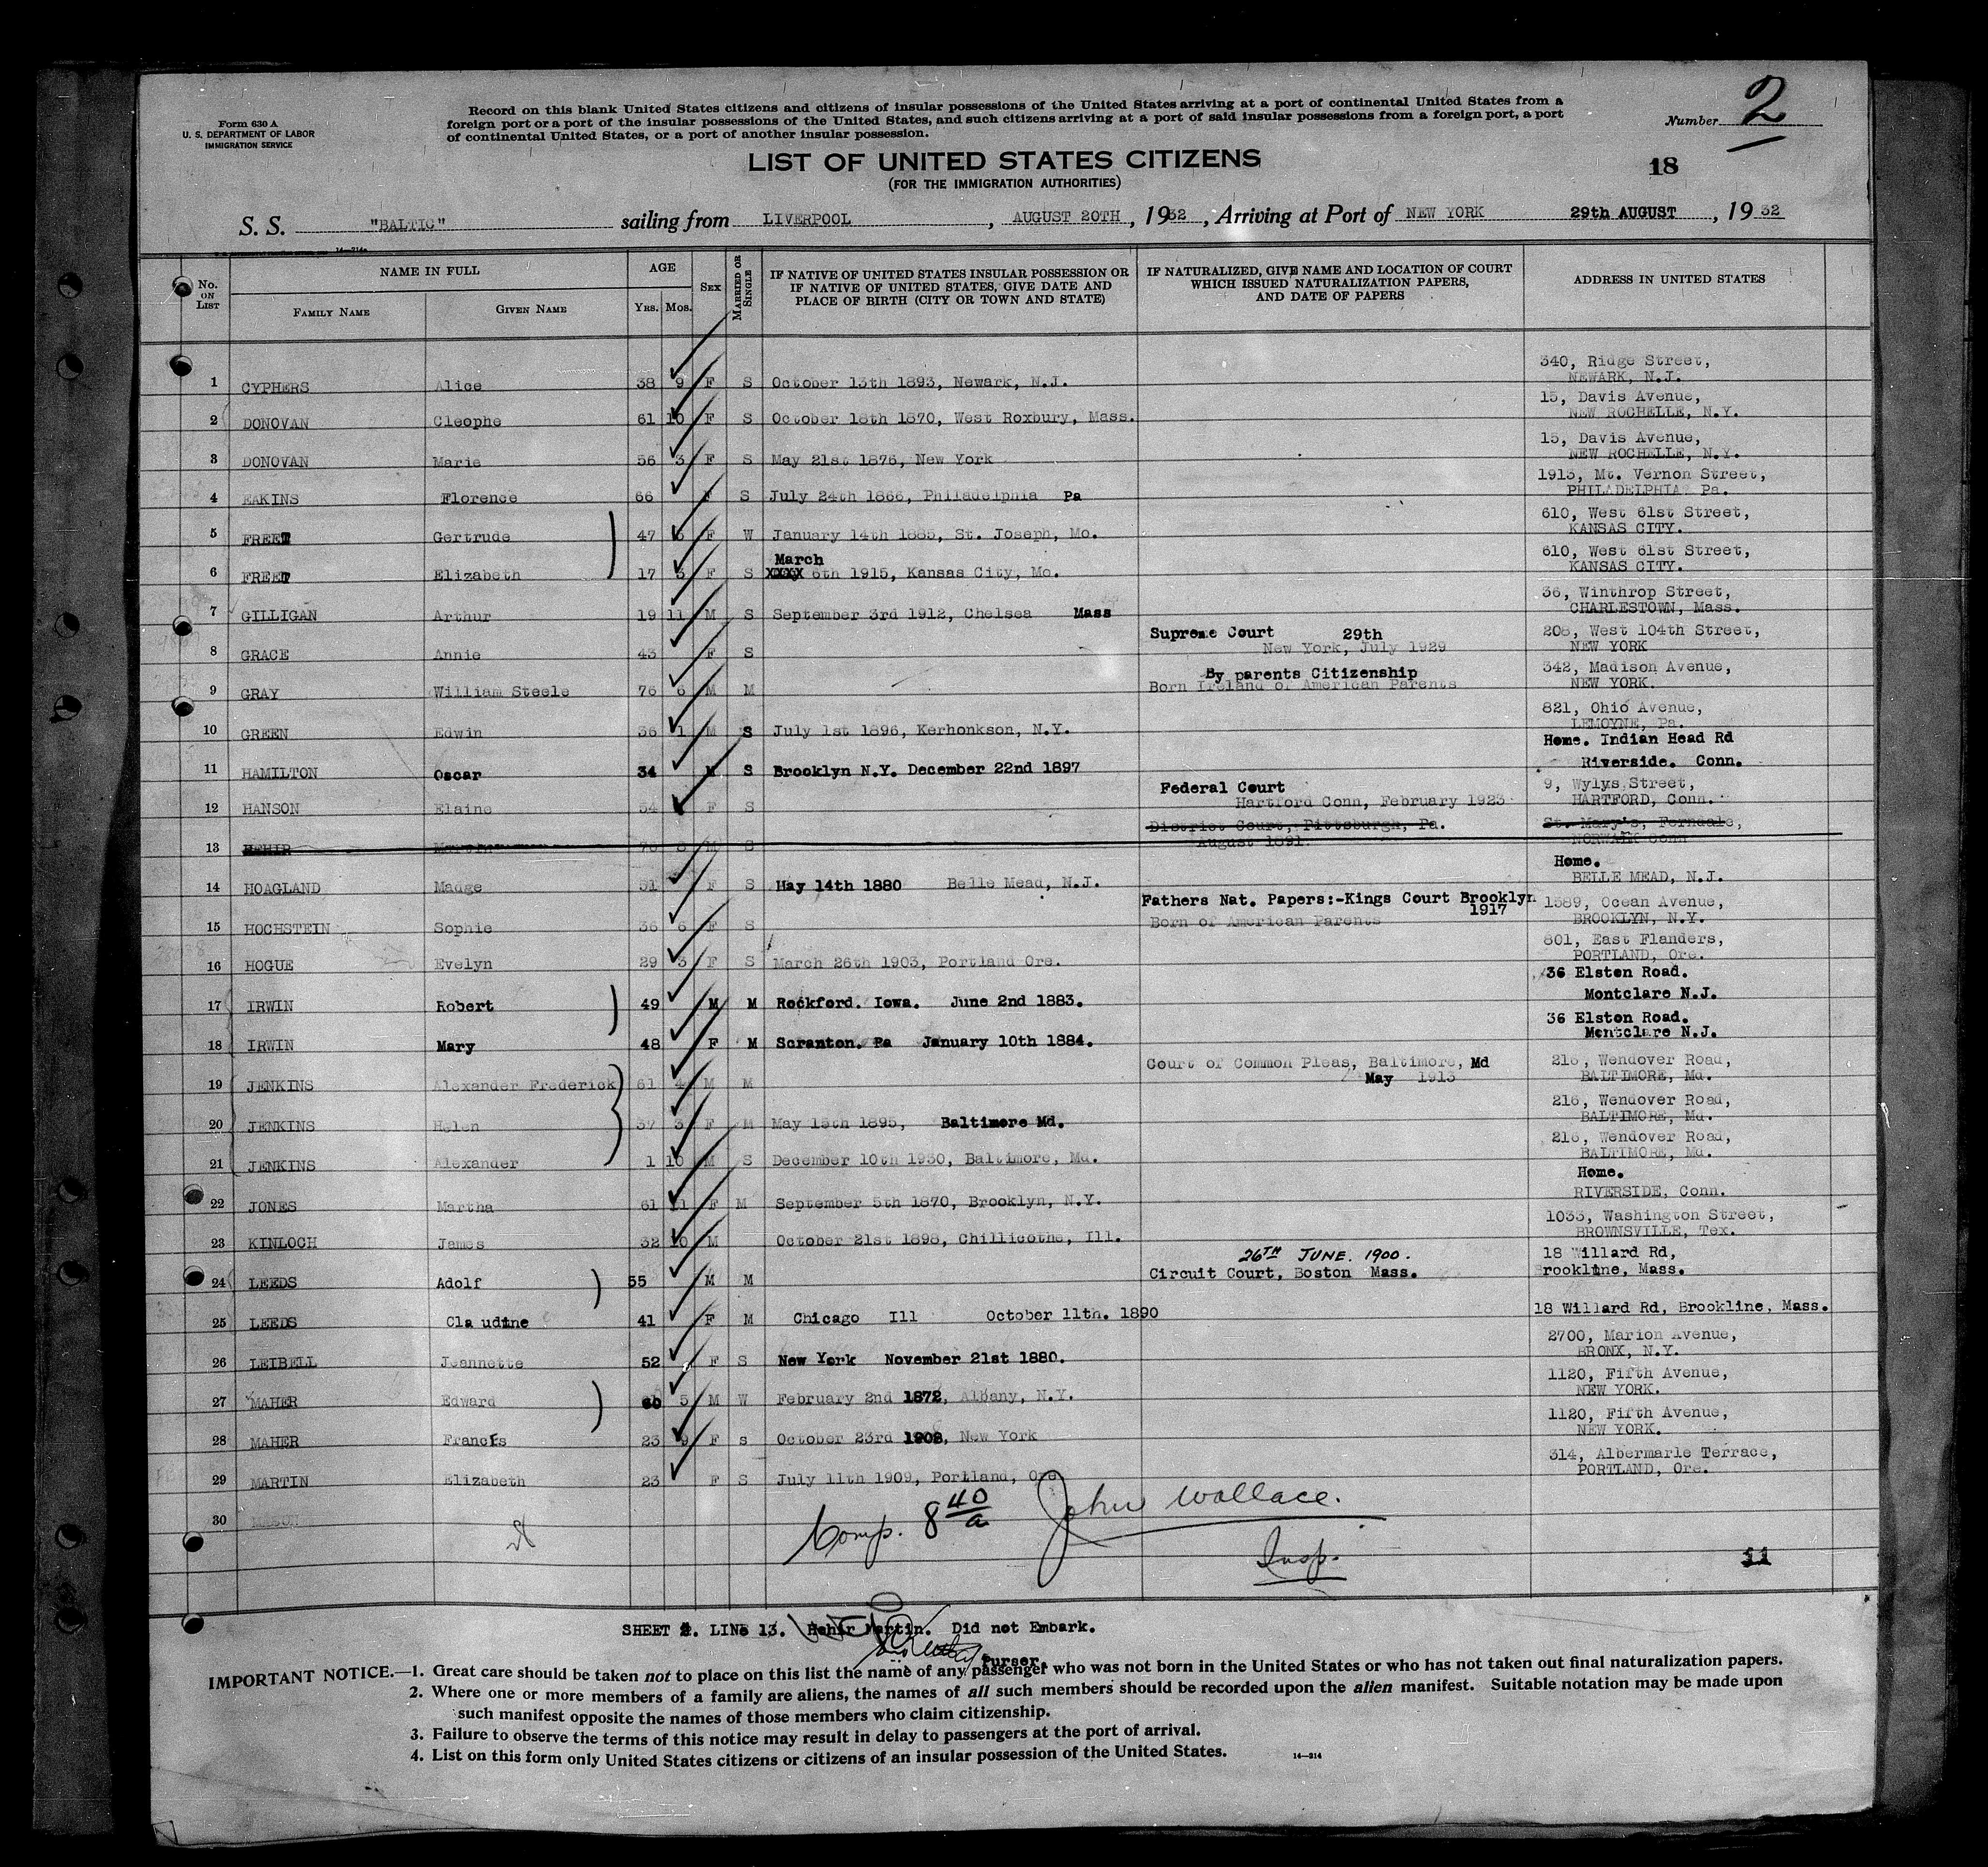 Form 630 A
U. S. DEPARTMENT OF LABOR
IMMIGRATION SERVICE
Record on this blank United States citizens and citizens of insular possessions of the United States arriving at a port of continental United States from a
foreign port or a port of the insular possessions of the United States, and such citizens arriving at a port of said insular possessions from a foreign port, a port
of continental United States, or a port of another insular possession.
Number 2
LIST OF UNITED STATES CITIZENS
(FOR THE IMMIGRATION AUTHORITIES)
18
S. S. "BALTIC" sailing from LIVERPOOL, AUGUST 20TH, 1932, Arriving at Port of NEW YORK 29th AUGUST, 1932
No. ON LIST
NAME IN FULL
FAMILY NAME
GIVEN NAME
AGE
YRS. MOS.
SEX
MARRIED OR SINGLE
IF NATIVE OF UNITED STATES INSULAR POSSESSION OR
IF NATIVE OF UNITED STATES, GIVE DATE AND
PLACE OF BIRTH (CITY OR TOWN AND STATE)
IF NATURALIZED, GIVE NAME AND LOCATION OF COURT
WHICH ISSUED NATURALIZATION PAPERS,
AND DATE OF PAPERS
ADDRESS IN UNITED STATES
340, Ridge Street,
1 CYPHERS Alice 38 9 F S October 13th 1893, Newark, N.J. NEWARK, N.J.
15, Davis Avenue,
2 DONOVAN Cleophe 61 10 F S October 18th 1870, West Roxbury, Mass. NEW ROCHELLE, N.Y.
15, Davis Avenue,
3 DONOVAN Marie 56 3 F S May 21st 1876, New York NEW ROCHELLE, N.Y.
1913, Mt. Vernon Street,
4 EAKINS Florence 66 F S July 24th 1866, Philadelphia Pa PHILADELPHIA Pa.
610, West 61st Street,
5 FREET Gertrude 47 6 F W January 14th 1885, St. Joseph, Mo. KANSAS CITY.
March 610, West 61st Street,
6 FREET Elizabeth 17 3 F S XXXX 6th 1915, Kansas City, Mo. KANSAS CITY.
36, Winthrop Street,
7 GILLIGAN Arthur 19 11 M S September 3rd 1912, Chelsea Mass CHARLESTOWN, Mass.
Supreme Court 29th 208, West 104th Street,
8 GRACE Annie 43 F S New York, July 1929 NEW YORK
By parents Citizenship 342, Madison Avenue,
9 GRAY William Steele 76 6 M M Born Ireland of American Parents NEW YORK.
821, Ohio Avenue,
10 GREEN Edwin 36 1 M S July 1st 1896, Kerhonkson, N.Y. LEMOYNE, Pa.
Home. Indian Head Rd
11 HAMILTON Oscar 34 M S Brooklyn N.Y. December 22nd 1897 Riverside. Conn.
Federal Court 9, Wylys Street,
12 HANSON Elaine 54 F S Hartford Conn, February 1923 HARTFORD, Conn.
District Court, Pittsburgh, Pa. St. Mary's, Ferndale,
13 HEHIR Martin 70 8 M S August 1891. NORWALK Conn
Home.
14 HOAGLAND Madge 51 F S May 14th 1880 Belle Mead, N.J. BELLE MEAD, N.J.
Fathers Nat. Papers:-Kings Court Brooklyn 1589, Ocean Avenue,
1917
15 HOCHSTEIN Sophie 36 6 F S Born of American Parents BROOKLYN, N.Y.
801, East Flanders,
16 HOGUE Evelyn 29 3 F S March 26th 1903, Portland Ore. PORTLAND, Ore.
36 Elston Road.
17 IRWIN Robert 49 M M Rockford. Iowa. June 2nd 1883. Montclare N.J.
36 Elston Road.
18 IRWIN Mary 48 F M Scranton. Pa January 10th 1884. Montclare N.J.
Court of Common Pleas, Baltimore, Md 216, Wendover Road,
19 JENKINS Alexander Frederick 61 4 M M May 1913 BALTIMORE, Md.
216, Wendover Road,
20 JENKINS Helen 37 3 F M May 15th 1895, Baltimore Md. BALTIMORE, Md.
216, Wendover Road,
21 JENKINS Alexander 1 10 M S December 10th 1930, Baltimore, Md. BALTIMORE, Md.
Home.
22 JONES Martha 61 11 F M September 5th 1870, Brooklyn, N.Y. RIVERSIDE, Conn.
1033, Washington Street,
23 KINLOCH James 32 10 M October 21st 1898, Chillicothe, Ill. BROWNSVILLE, Tex.
26TH JUNE. 1900. 18 Willard Rd,
24 LEEDS Adolf 55 M M Circuit Court, Boston Mass. Brookline, Mass.
25 LEEDS Claudine 41 F M Chicago Ill October 11th. 1890 18 Willard Rd, Brookline, Mass.
2700, Marion Avenue,
26 LEIBELL Jeannette 52 F S New York November 21st 1880. BRONX, N.Y.
1120, Fifth Avenue,
27 MAHER Edward 60 5 M W February 2nd 1872, Albany, N.Y. NEW YORK.
1120, Fifth Avenue,
28 MAHER Frances 23 9 F S October 23rd 1908, New York NEW YORK.
314, Albermarle Terrace,
29 MARTIN Elizabeth 23 F S July 11th 1909, Portland, Ore PORTLAND, Ore.
30 MASON
Comp. 8 40/a John Wallace.
Insp.
11
SHEET 2. LINE 13. Hehir Martin. Did not Embark.
Purser.
IMPORTANT NOTICE.—1. Great care should be taken not to place on this list the name of any passenger who was not born in the United States or who has not taken out final naturalization papers.
2. Where one or more members of a family are aliens, the names of all such members should be recorded upon the alien manifest. Suitable notation may be made upon
such manifest opposite the names of those members who claim citizenship.
3. Failure to observe the terms of this notice may result in delay to passengers at the port of arrival.
4. List on this form only United States citizens or citizens of an insular possession of the United States.
14—214